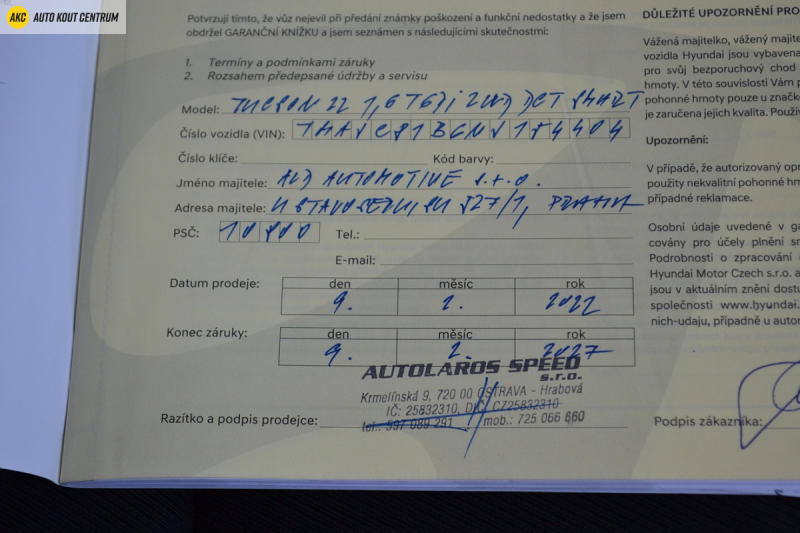 AKC AUTO KOUT CENTRUM
Potvrzuji tímto, že vůz nejevil při předání známky poškození a funkční nedostatky a že jsem
obdržel GARANČNÍ KNÍŽKU a jsem seznámen s následujícími skutečnostmi:
1. Termíny a podmínkami záruky
2. Rozsahem předepsané údržby a servisu
Model: TUCSON 22 1,6 TGDi 2WD DCT SMART
Číslo vozidla (VIN):
Číslo klíče: Kód barvy:
Jméno majitele: ALD AUTOMOTIVE s.r.o.
Adresa majitele: U STAVOSERVISU 527/1, PRAHA
PSČ: 10800 Tel.:
E-mail:
Datum prodeje: den měsíc rok
9. 2. 2022
Konec záruky: den měsíc rok
9. 2. 2027
AUTOLAROS SPEED
s.r.o.
Krmelínská 9, 720 00 OSTRAVA - Hrabová
IČ: 25832310, DIČ: CZ25832310
tel.: 597 089 291 mob.: 725 066 660
Razítko a podpis prodejce:
Podpis zákazníka:
DŮLEŽITÉ UPOZORNĚNÍ PRO
Vážená majitelko, vážený majiteli
vozidla Hyundai jsou vybavena
pro svůj bezporuchový chod
hmoty. V této souvislosti Vám
pohonné hmoty pouze u značko
je zaručena jejich kvalita. Použív
Upozornění:
V případě, že autorizovaný opr
použity nekvalitní pohonné hm
případné reklamace.
Osobní údaje uvedené v ga
covány pro účely plnění sm
Podrobnosti o zpracování
Hyundai Motor Czech s.r.o. a
jsou v aktuálním znění dostu
společnosti www.hyundai.
nich-udaju, případně u autor